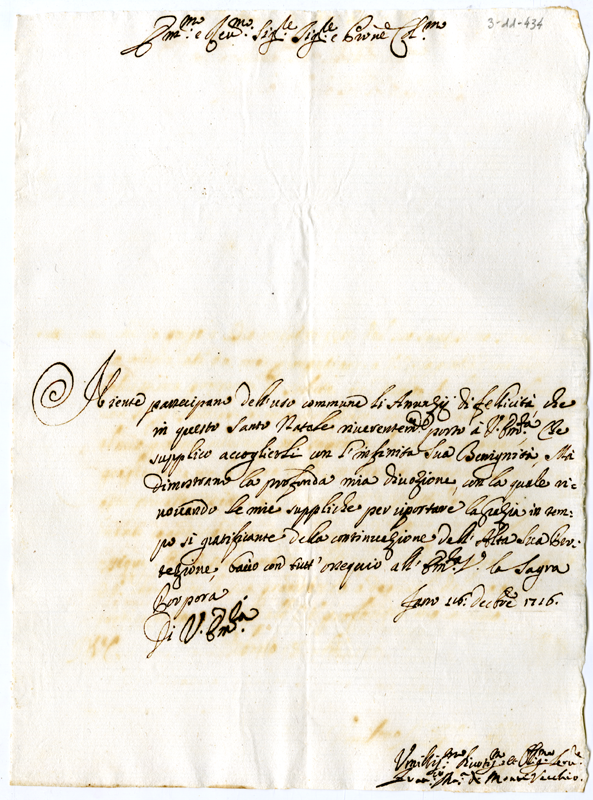 3-11-434
Em.mo e Rev.mo Sig.le Sig.le e P.rone Col.mo
Niente partecipano dell'uso commune li Annunzij di felicità, che
in questo Santo Natale riverentem.te porto à V. Em.za, Che
supplico accoglierli con l'infinita Sua Benignità. Mà
dimostrano la profonda mia divozione, con la quale ri-
novando le mie suppliche per riportare la grazia in tem-
po si gratificante della continuazione dell'Alta Sua Pro-
tezione, bacio con tutt'ossequio all' Em.za V.a la Sagra
Porpora
Fano 16: Decbre 1716.
Di V. Em.za
Umiliss.mo Devotiss.mo et Oblig.mo Serv.re
de Monte Vecchio.